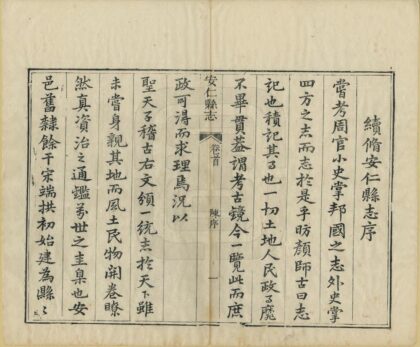 續脩安仁縣志序
嘗考周官小史掌邦國之志外史掌
四方之志而志於是乎昉顏師古曰志
記也積記其事也一切土地人民政事靡
不畢貫蓋謂考古鏡今一覽此而庶
安仁縣志
卷首
陳序
一
政可得而求理焉況以
聖天子稽古右文頒一統志於天下雖
未嘗身親其地而風土民物開卷瞭
然真資治之通鑑萬世之圭臬也安
邑舊隸餘干宋端拱初始建為縣